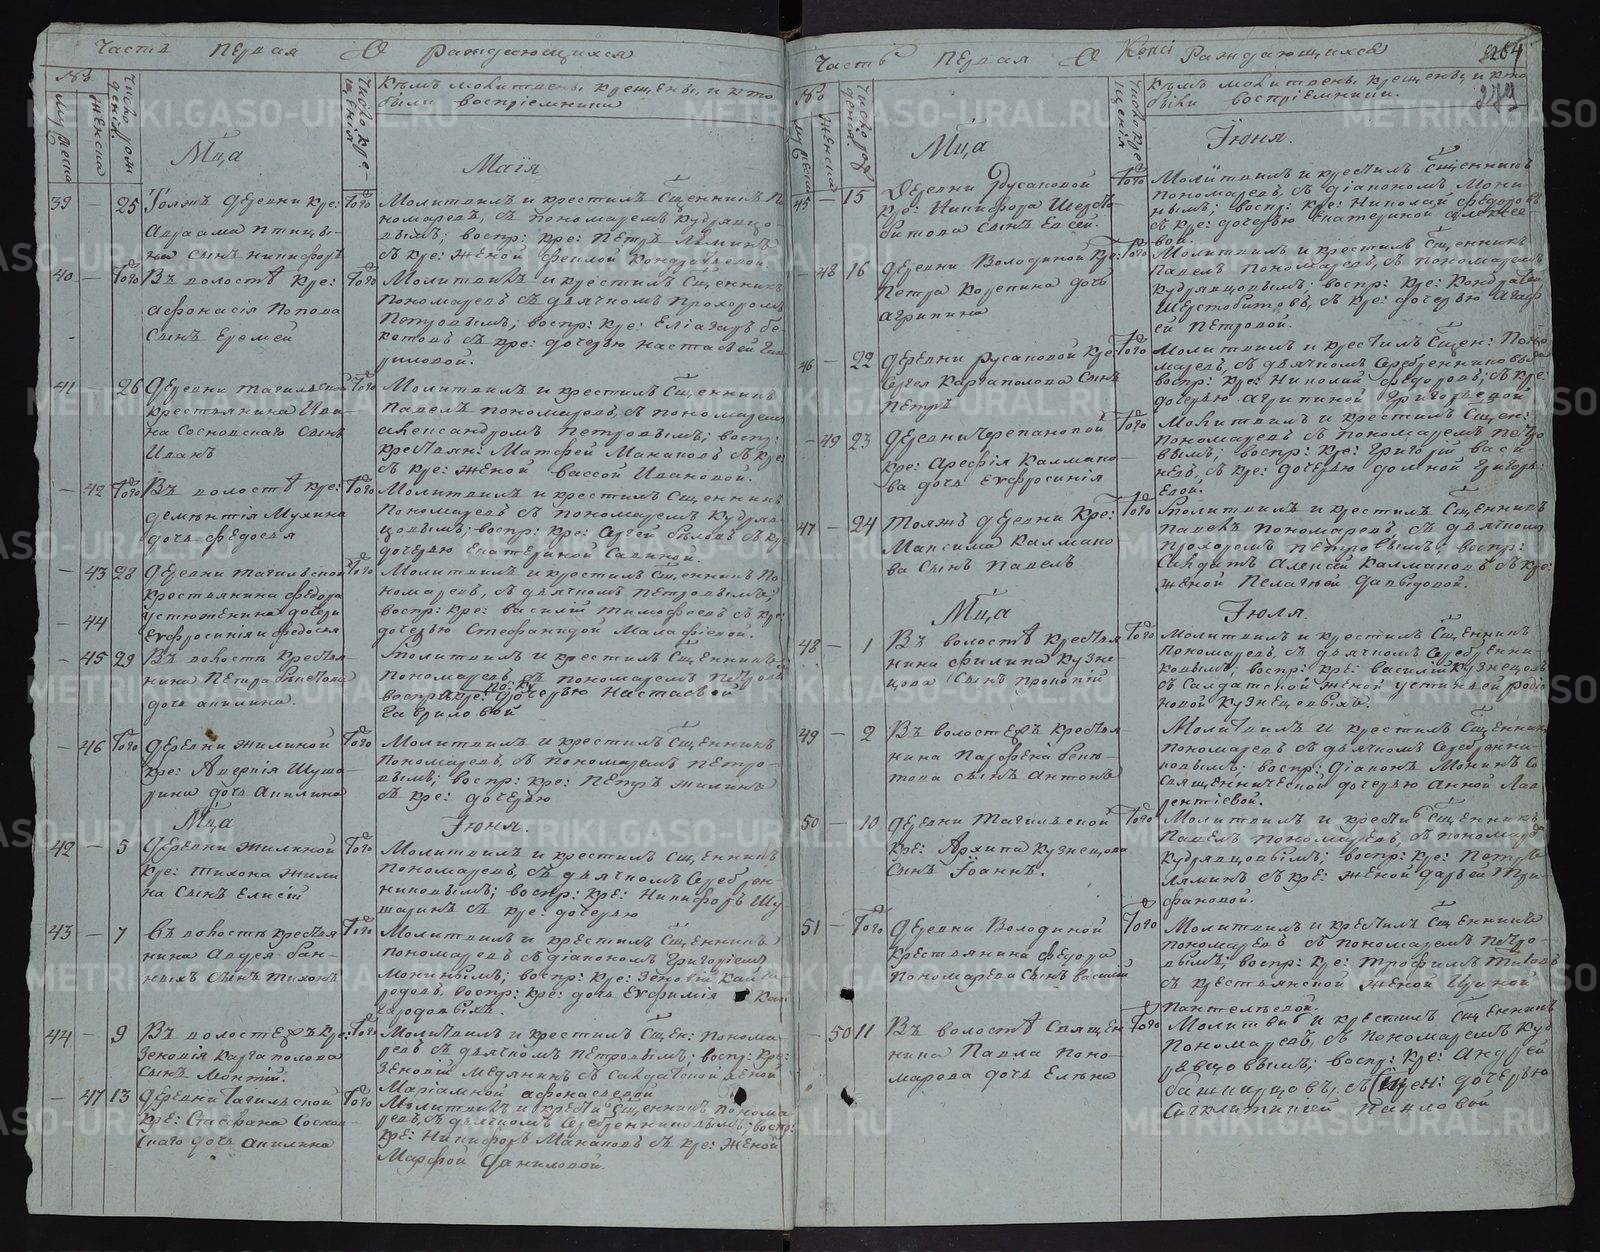 Часть первая О раждающихся
№
мужеска
женска
Число рождения.
Число крещенія
Кѣмъ молитвены, крещены, и кто
были воспріемники
Мца Маія
39 — 25 Тояжъ деревни кре: Того
Авраама Птицы-
на сынъ Никифоръ
Молитвилъ и крестилъ Сщенникъ По
номаревъ, съ пономаремъ Кудрявцо-
вымъ; воспр: кре: Петръ Ляминъ
съ кре: женой Феклой Кондратьевой
40 — Того Въ волостѣ кре: Того
Афонасія Попова
сынъ Еремей
Молитвилъ и крестилъ Сщенникъ
Пономаревъ съ дьячкомъ Прохоромъ
Петровымъ; воспр: кре: Еліазаръ Бе-
кетовъ съ кре: дочерью Настасьей Гав
риловой.
41 — 26 Деревни Тагильской Того
крестьянина Ива-
на Сосновскаго сынъ
Иванъ
Молитвилъ и крестилъ Сщенникъ
Павелъ Пономаревъ, съ пономаремъ
Александромъ Петровымъ; воспр:
крестьян: Матфей Манаковъ съ кре:
съ кре: женой Вассой Ивановой.
— 42 Того Въ волостѣ кре: Того
Дементія Мухина
дочь Федосья
Молитвилъ и крестилъ Сщенникъ
Пономаревъ съ пономаремъ Кудряв
цовымъ; воспр: кре: Сергей Бѣловъ съ кре
дочерью Екатериной Савиной.
— 43 28 Деревни Тагильской Того
крестьянина Федора
— 44 Устюженина дочери
Евфросинія и Федосья
Молитвилъ и крестилъ Сщенникъ По
номаревъ, съ дьячкомъ Петровымъ;
воспр: кре: Василій Тимофеевъ съ кре:
дочерью Стефанидой Малафіевой.
— 45 29 Въ волость крестья-
нина Петра
дочь Акилина.
Молитвилъ и крестилъ Сщенникъ
Пономаревъ, съ пономаремъ Петровы
воспр: кре: дочерью Настасьей
Гавриловой
— 46 Того Деревни Жилиной Того
кре: Аверкія Шуша-
рина дочь Акилина
Молитвилъ и крестилъ Сщенникъ
Пономаревъ, съ пономаремъ Петро-
вымъ; воспр: кре: Петръ Жилинъ
съ кре: дочерью
Мца Іюня.
42 — 5 Деревни Жилиной Того
кре: Тихона Жили
на сынъ Елисій
Молитвилъ и крестилъ Сщенникъ
Пономаревъ, съ дьячкомъ Серебрен-
никовымъ; воспр: кре: Никифоръ Шу
шаринъ съ кре: дочерью
43 — 7 Въ волость крестья Того
нина Авдея Бан-
ныхъ сынъ Тихонъ
Молитвилъ и крестилъ Сщенникъ
Пономаревъ съ діакономъ Григоріемъ
Мокинымъ; воспр: кре: Зеновій Кайго-
родовъ, воспр: кре: дочь Евфимія Кай
городовыхъ.
44 — 9 Въ волостѣ кре: Того
Зеновія Каргаполова
сынъ Монтій.
Молитвилъ и крестилъ Сщен: Понома
ревъ съ дьячкомъ Петровымъ; воспр: кре:
Зеновій Медянинъ съ салдатской женой
Маріамной Афонасьевой
— 47 13 Деревни Тагильской Того
кре: Стефана Соснов
скаго дочь Акилина
Молитвилъ и крести Сщенникъ Понома
ревъ, съ дьячкомъ Серебренниковымъ; воспр:
кре: Никифоръ Манаковъ съ кре: женой
Марфой Даниловой.
Часть первая О Раждающихся
264
279
№
мужеска
женска
Число рождения.
Число крещенія
Кѣмъ молитвены, крещены, и кто
были воспріемники.
Мца Іюня.
45 — 15 Деревни Русаковой Того
кре: Никифора Шесто-
битова сынъ Евсей.
Молитвилъ и крестилъ Сщенникъ
Пономаревъ, съ діакономъ Моки-
нымъ; воспр: кре: Николай Федоровъ
съ кре: дочерью Екатериной Алексее-
вой.
— 48 16 Деревни Володиной кре: Того
Петра Корепина дочь
Агрипина
Молитвилъ и крестилъ Сщенникъ
Павелъ Пономаревъ, съ пономаремъ
Кудрявцовымъ; воспр: кре: Кондратей
Шестобитовъ, съ кре: дочерью Агаф
ей Петровой.
46 — 22 Деревни Русаковой кре: Того
Сергея Каргаполова сынъ
Петръ
Молитвилъ и крестилъ Сщен: Поно
маревъ, съ дьячкомъ Серебренниковымъ
воспр: кре: Николай Федоровъ; съ кре:
дочерью Агрипиной Григорьевой
— 49 23 Деревни Черепановой Того
кре: Арефія Калмако-
ва дочь Евфросинія
Молитвилъ и крестилъ Сщен:
Пономаревъ съ пономаремъ Петро
вымъ; воспр: кре: Григорій Васи-
левъ, съ кре: дочерью Домной Григорь-
евой.
47 — 24 Тояжъ деревни кре: Того
Максима Калмако
ва сынъ Павелъ
Молитвилъ и крестилъ Сщенникъ
Павелъ Пономаревъ, съ дьячкомъ
Прохоромъ Петровымъ; воспр:
Салдатъ Алексій Калмаковъ съ кре:
женой Пелагіей Давыдовой.
Мца Іюля.
48 — 1 Въ волостѣ крестья Того
нина Филипа Кузне-
цова сынъ Прокопій
Молитвилъ и крестилъ Сщенникъ
Пономаревъ, съ дьячкомъ Серебренни-
ковымъ; воспр: кре: Василій Кузнецовъ
съ Салдатской женой Устиньей Родіо
новой Кузнецовыхъ.
49 — 2 Въ волостѣ крестья
нина Парфена Беке-
това сынъ Антонъ
Молитвилъ и крестилъ Сщенникъ
Пономаревъ съ дьячкомъ Серебренни-
ковымъ; воспр: діаконъ Мокинъ съ
священнической дочерью Анной Лав
рентіевой.
50 — 10 Деревни Тагильской Того
кре: Архипа Кузнецова
сынъ Іоаннъ.
Молитвилъ и крести Сщенникъ
Павелъ Пономаревъ, съ пономаремъ
Кудрявцовымъ; воспр: кре: Петръ
Ляминъ съ кре: женой Дарьей Три-
фановой.
51 — Того Деревни Володиной Того
крестьянина Федора
Пономарева сынъ Василій
Молитвилъ и крестилъ Сщенникъ
Пономаревъ съ пономаремъ Петро-
вымъ; воспр: кре: Трофимъ Титовъ
съ крестьянской женой Ириной
Пантелѣевой.
— 50 11 Въ волостѣ Священ Того
ника Павла Поно-
марова дочь Елена
Молитви и крестилъ Сщенникъ
Пономаревъ, съ пономаремъ Куд
рявцовымъ; воспр: кре: Андрей
Башкирцовъ, съ Сщен: дочерью
Сигклитикіей Павловой
METRIKI.GASO-URAL.RU